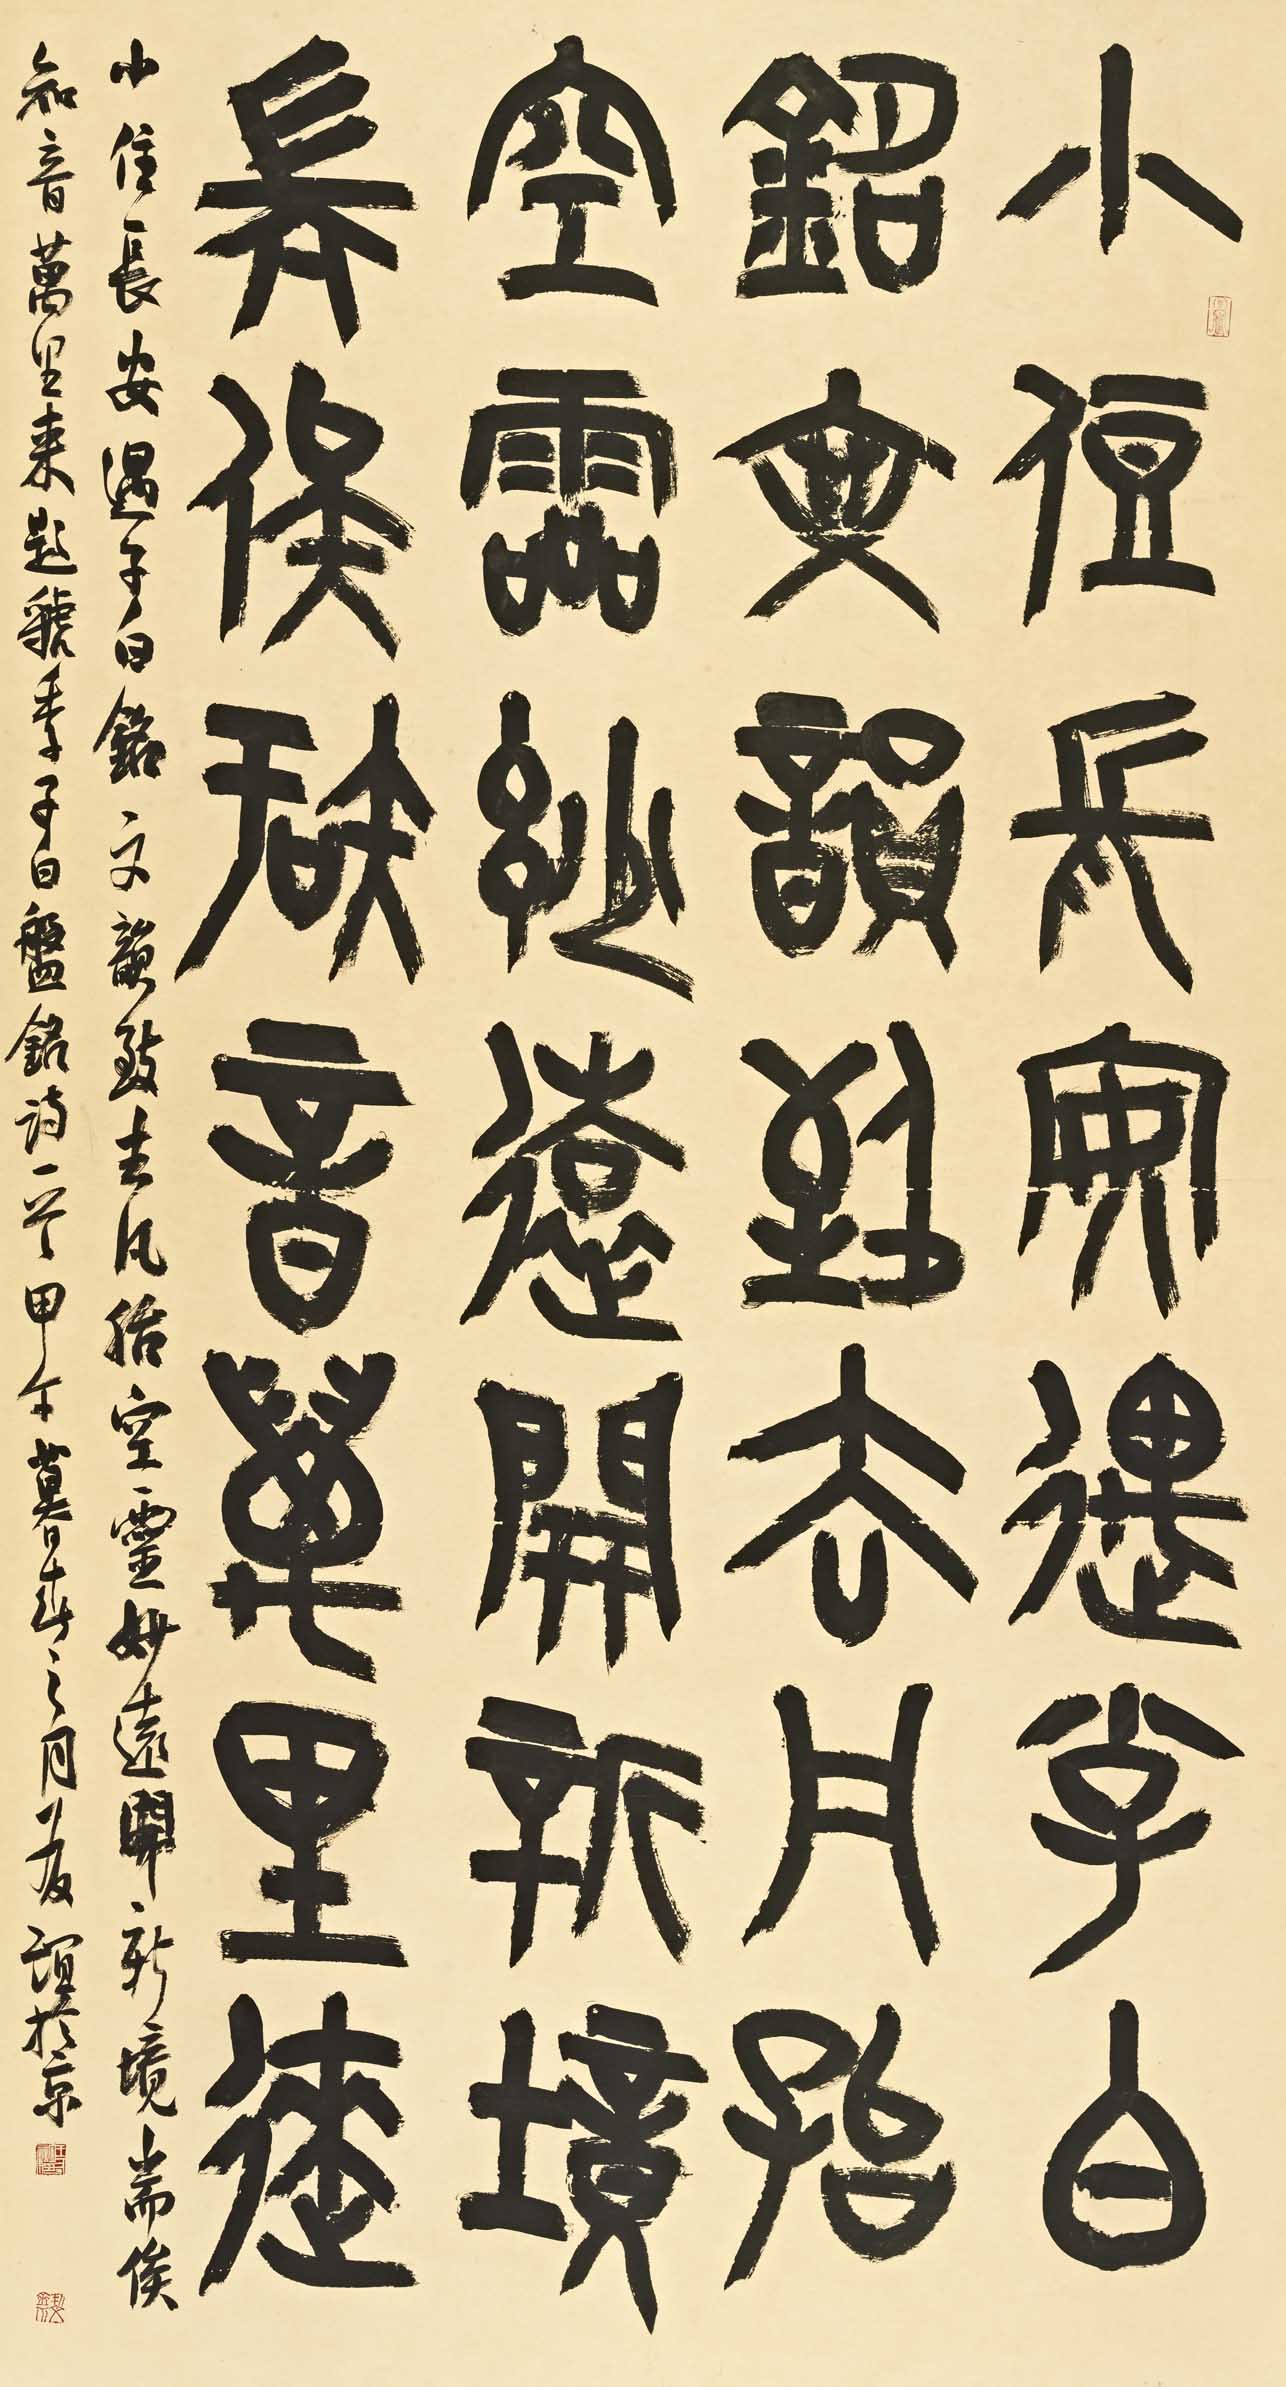 小住長安遇子白
銘文韻致去凡胎
空靈妙遠開新境
耑俟知音萬里來
小住長安遇子白銘文韻致去凡胎空靈妙遠開新境耑俟
知音萬里來題虢季子白盤銘詩一首甲午暮春之月友誼於京